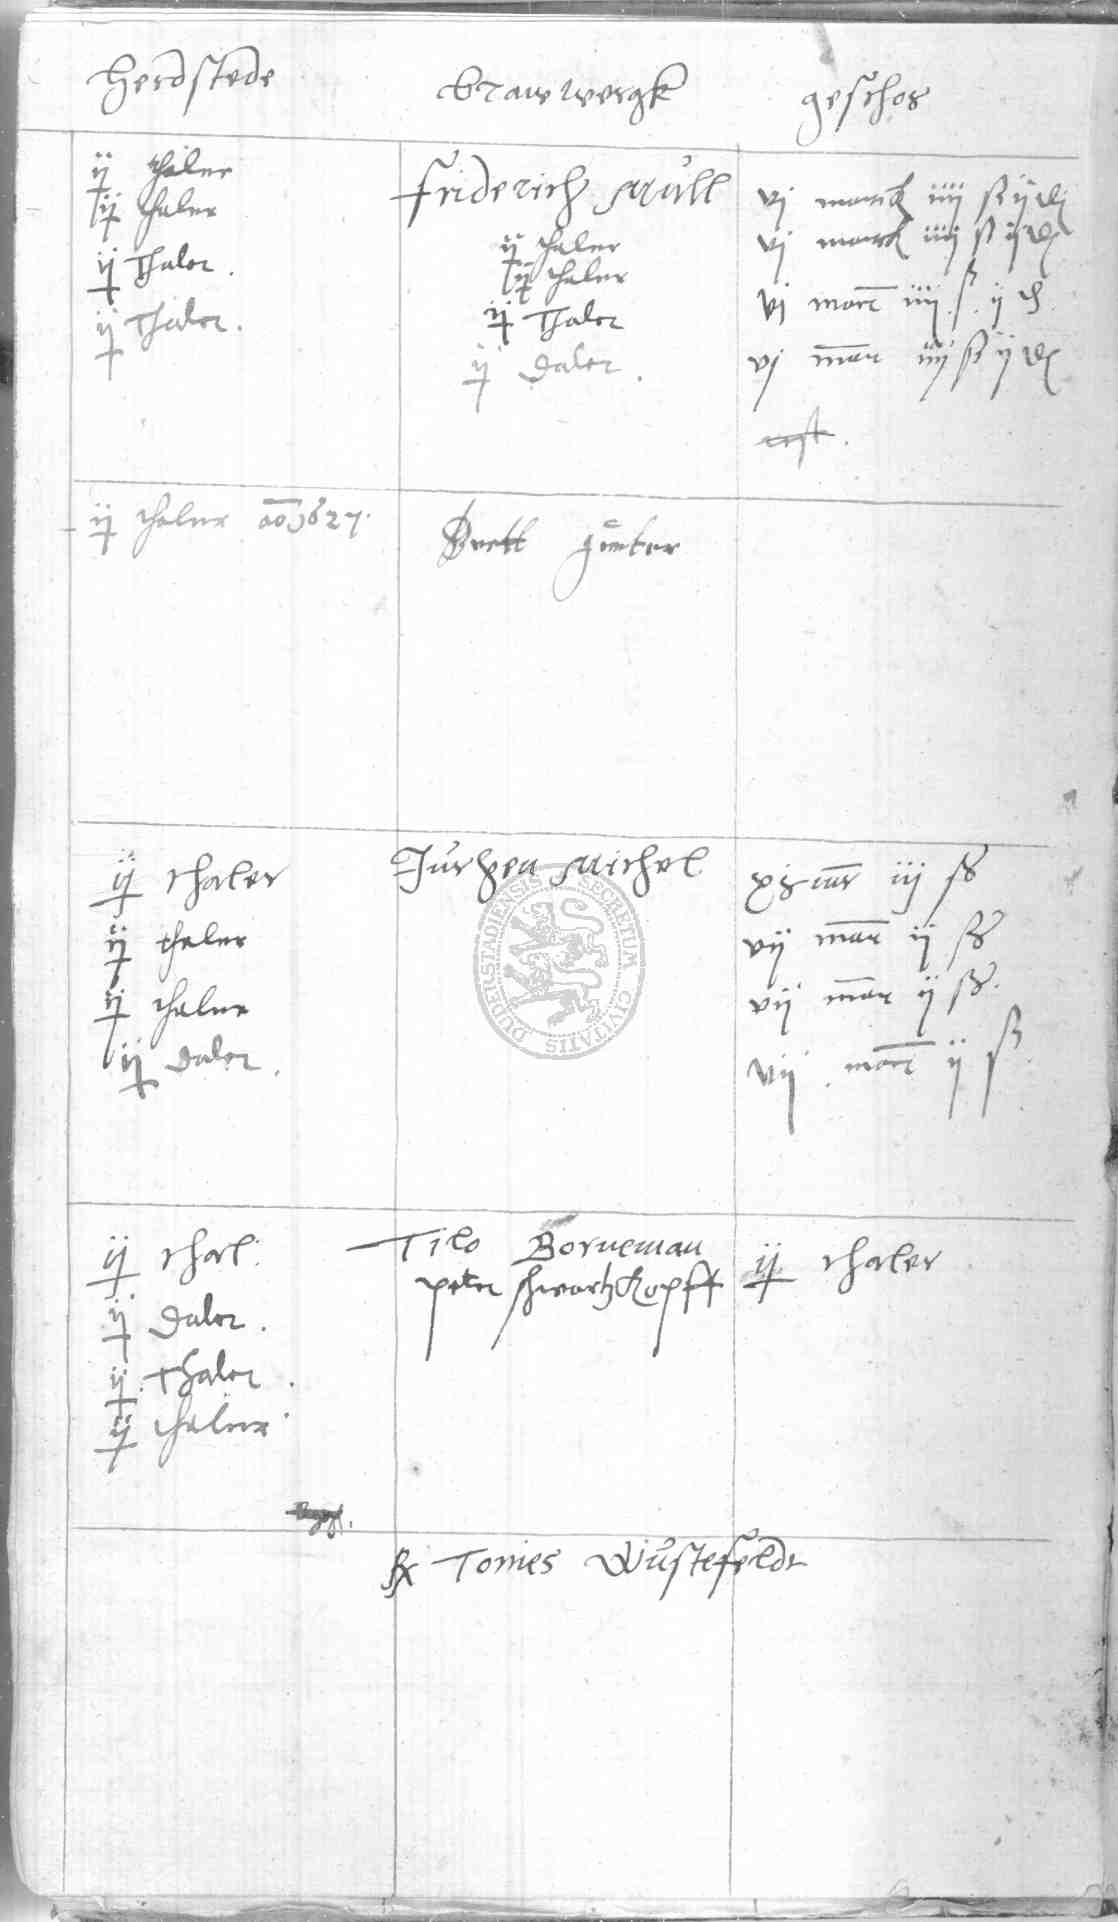 Herdstede brawwergk geschos
Friderich Mull
ij thaler
ij thaler
ij Thaler.
ij Thaler.
ij thaler
ij thaler
ij Thaler
ij Daler.
vj marck iiij ß ij d
vj marck iiij ß ij d
vj marc iiij ß ij d.
vj mar iiij ß ij d
ij thaler ao 1627.
Jurgen Michel
ij thaler
ij thaler
ij thaler
ij Daler.
iij ß
vij mar ij ß
vij mar ij ß.
vij marc ij ß.
Tilo Borneman
peter schwartzkopff
ij thal:
ij Daler.
ij Thaler.
ij thaler
ij thaler
Tonies Wustefeldt
DUDERSTADIENSIS SECRETUM CIVITATIS